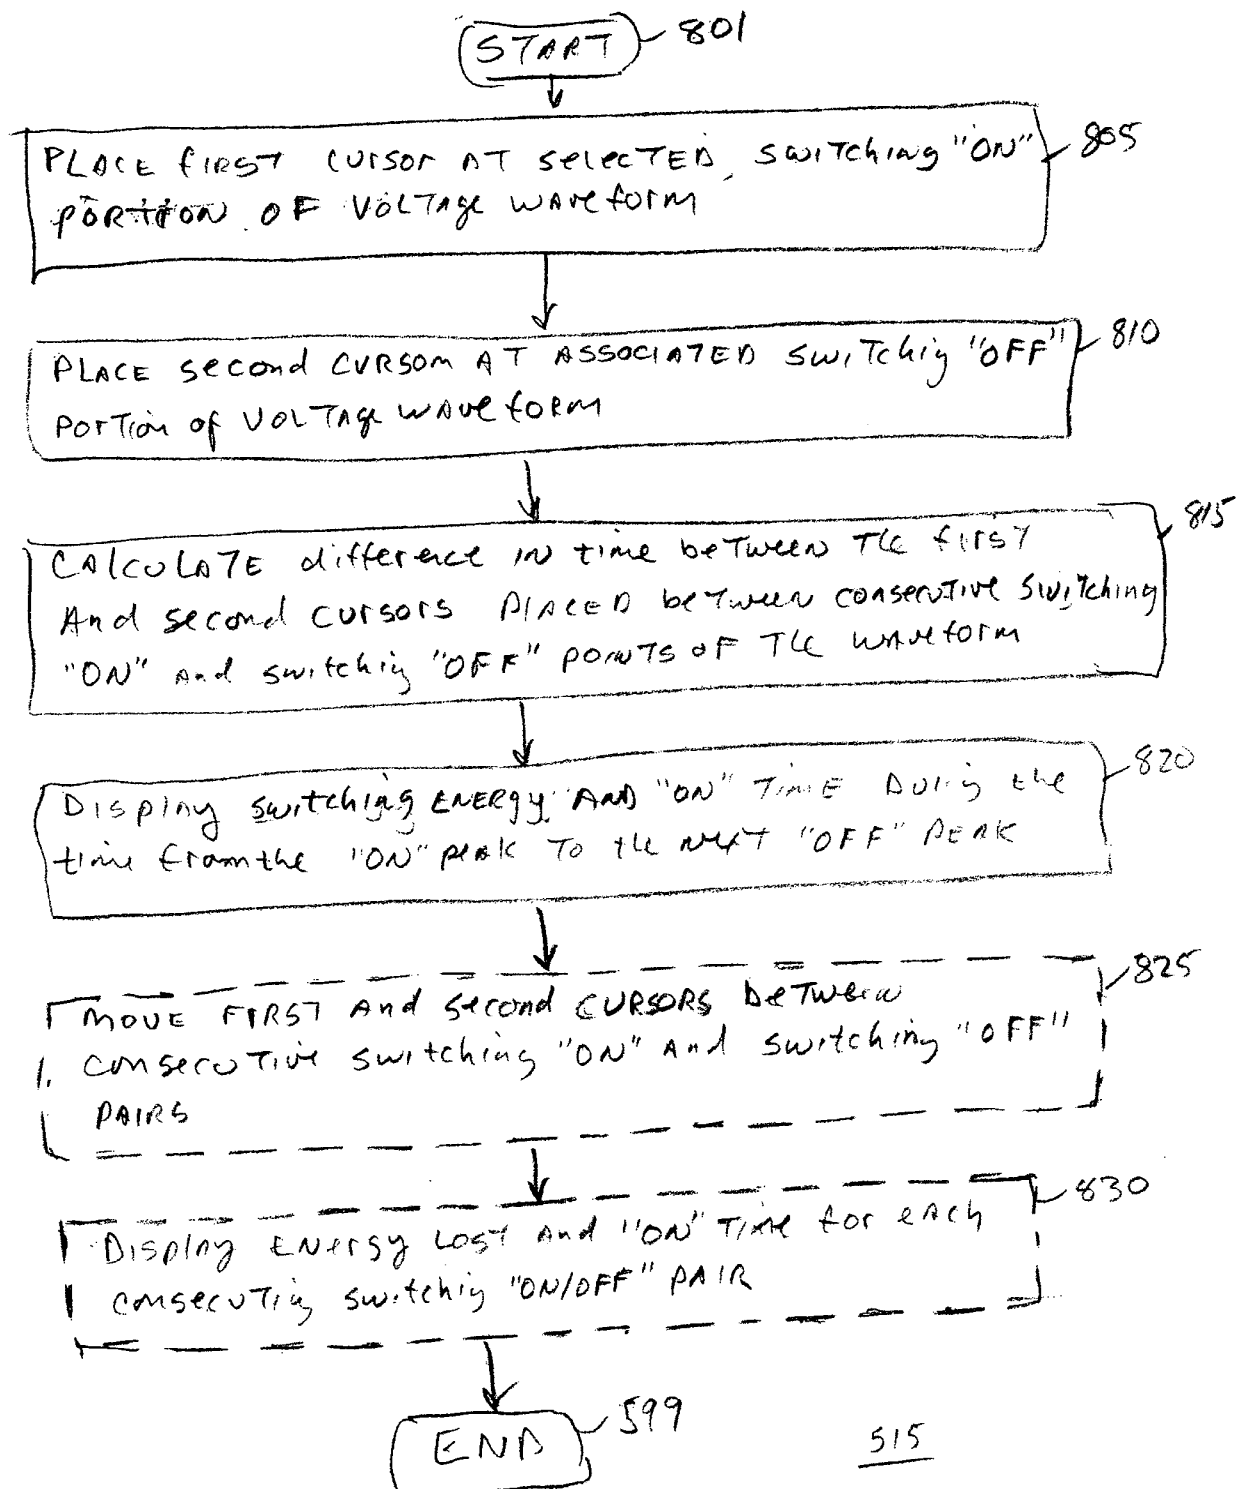 START 801
PLACE fIRST CURSOR AT SELECTED SWITCHING "ON" 805
PORTION OF VOLTAGE WAVEFORM
PLACE second CURSOM AT ASSOCIATED SWITCHIG "OFF" 810
PORTION of VOLTAGE WAVEFORM
CALCULATE difference IN time beTWEEN THE fIRST 815
And second cursors PLACED beTWEEN consecutive switching
"ON" and switching "OFF" POINTS OF THE WAVEFORM
Display switching ENERGY AND "ON" TIME During the 820
time from the "ON" peak To the NEXT "OFF" PEAK
MOVE FIRST And second CURSORS beTWEEN 825
consecuTive switching "ON" And switching "OFF"
PAIRS
Display ENERGY LOST And "ON" TIME for each 830
consecuTing switching "ON/OFF" PAIR
END 599
515